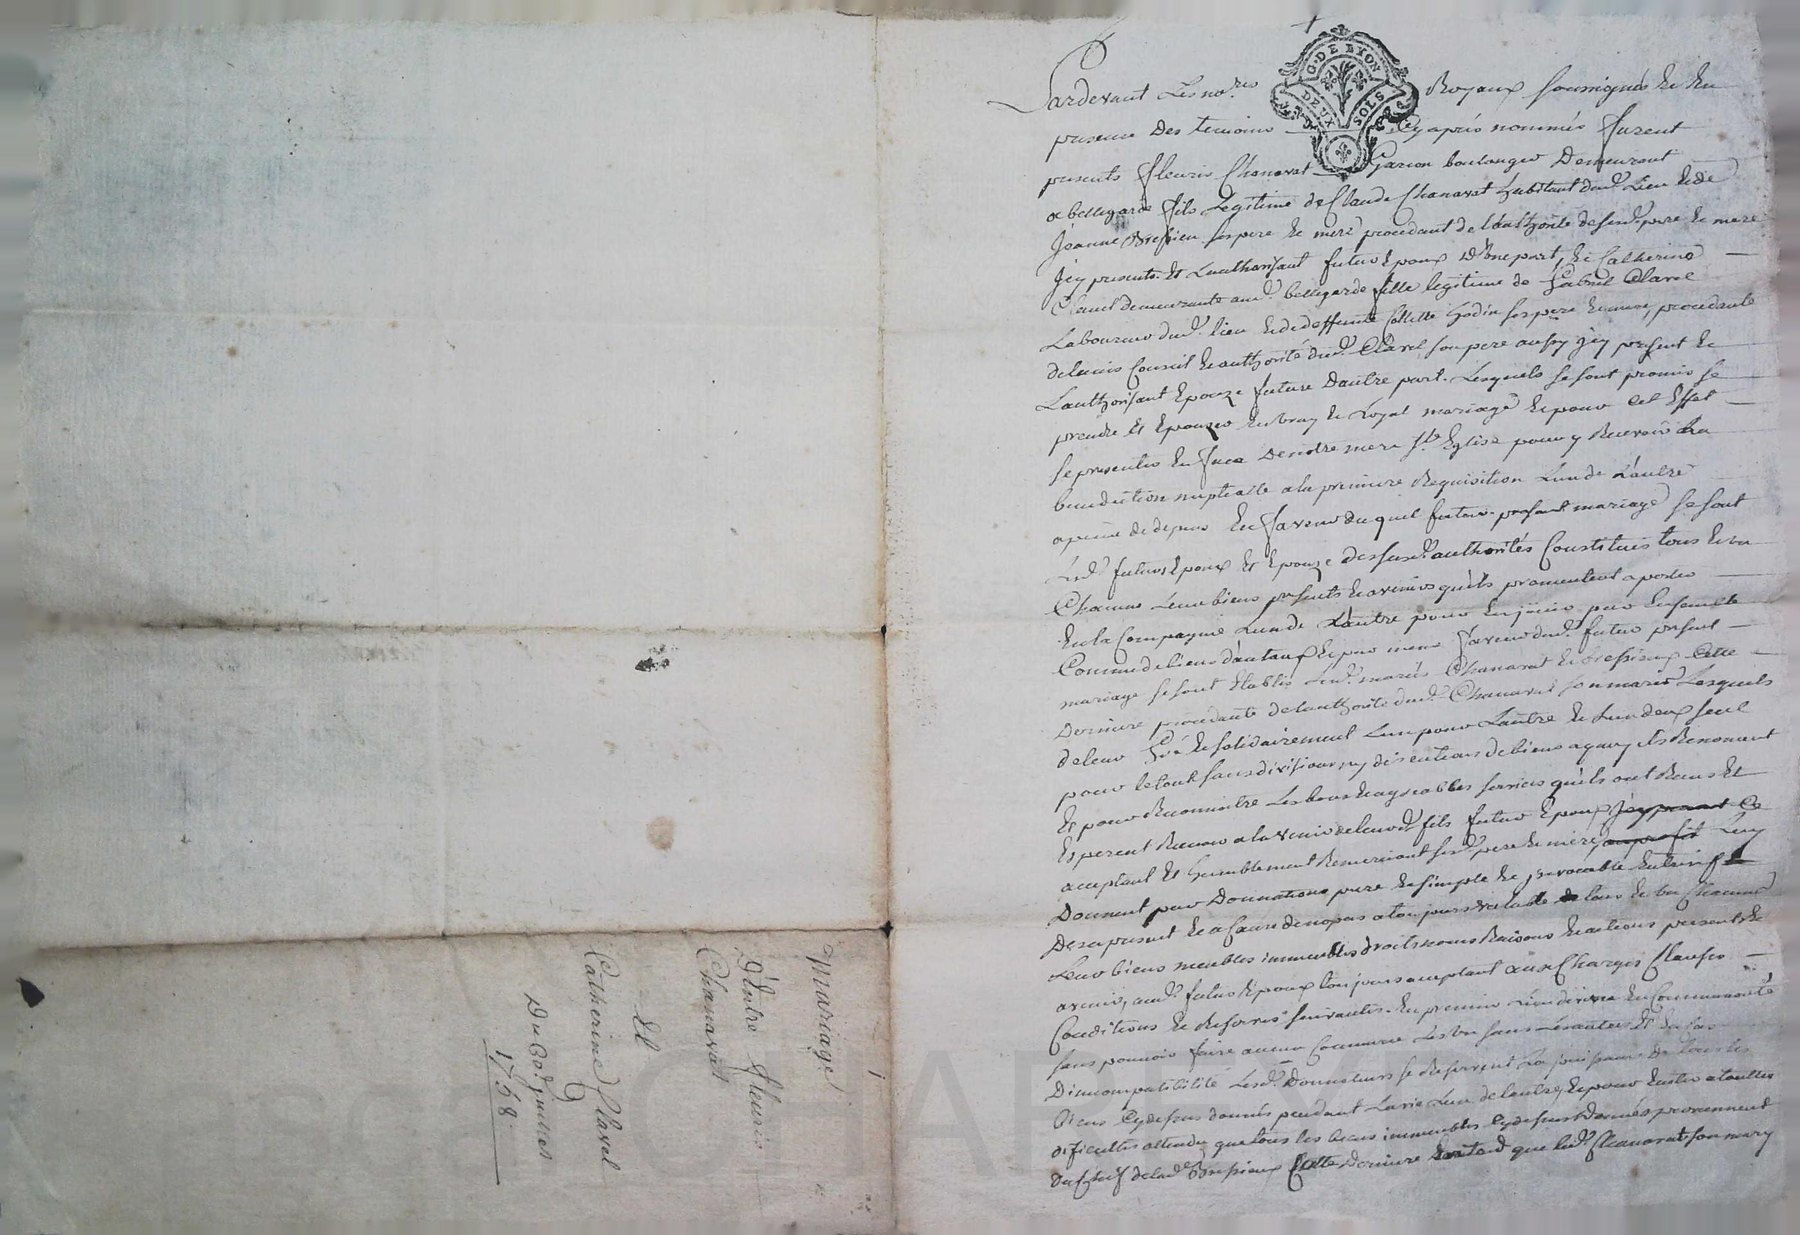 G. DE LYON
DEUX SOLS
Pardevant Les no.res Royaux soussignés Et En
presence Des temoins Cy après nommés furent
presents fleuris Chanavat Garçon boulanger Demeurant
a bellegarde fils Legitime de Claude Chanavat habitant dud. Lieu Et de
Jeanne Bressieu ses pere Et mere procedant de l'authorité desesd. pere Et mere
jcy presents Et Lauthorisant futur Epoux D'une part, Et Catherine
Clavel demeurante aud. bellegarde fille legitime de Gabriel Clavel
Laboureur dud. lieu Et de deffunte ses pere Et mere, procedante
de l'avis Conseil Et authorité dud. Clavel son pere aussy jcy present Et
Lauthorisant Epouze future Dautre part. Lesquels se sont promis se
prendre Et Epouzer En vray Et Loyal mariage Et pour Cet Effet
se presenter En face De notre mere s.te Eglise pour y Recevoir La
benediction nuptialle a la premiere Requisition Lun de L'autre
a peine de depens En faveur duquel futur present mariage se sont
Lesd. futurs Epoux Et Epouze desusd. authorités Constitués tous Et un
Chacun Leurs biens presents Et avenir quils promettent aporter
En la Compagnie Lun de Lautre pour En jouir par Ensemble
Commun Et par meme faveur dud. futur present
mariage se sont Etablis Lesd. mariés Chanavat Et Bressieux Cette
Derniere procedante de lauthorité dud. Chanavat son mary Lesquels
de leur gré Et solidairement Lun pour Lautre Et Lun deux seul
pour le tout sans division ny discutions de biens a quoy ils Renoncent
Et pour Reconnoitre Les bons Et agreables services quils ont Recus Et
Esperent Recevoir a la venir de leurd. fils futur Epoux jcy present Ce
acceptant Et humblement Remerciant sesd. pere Et mere au profit Luy
Donnent par Donnations pure Et simple Et jrrevocable Entre vifs
Des a present Et a Cause de nopces a toujours valable tous Et un Chacun
Leurs biens meubles immeubles droits noms Raisons Et actions presents Et
avenir, aud. futur Epoux toujours acceptant aux Charges Clauses
Conditions Et Reserves suivantes. En premier Lieu de vivre En Communauté
sans pouvoir faire aucun Commerce Les un sans Les autres Et En Cas
Dincompatibilité Lesd. Donnateurs se Reservent La jouissance De tous les
biens Cy dessus donnés pendant La vie Lun de lautre, Et pour Eviter a touttes
dificultés attendu que tous les biens immeubles Cy dessus donnés proviennent
du Chef de lad. Bressieux Cette Derniere Entend que led. Chanavat son mary
Mariage
D'Entre fleuris
Chanavat
Et
Catherine Clavel
Du 60. juillet
1758
CHAPEY